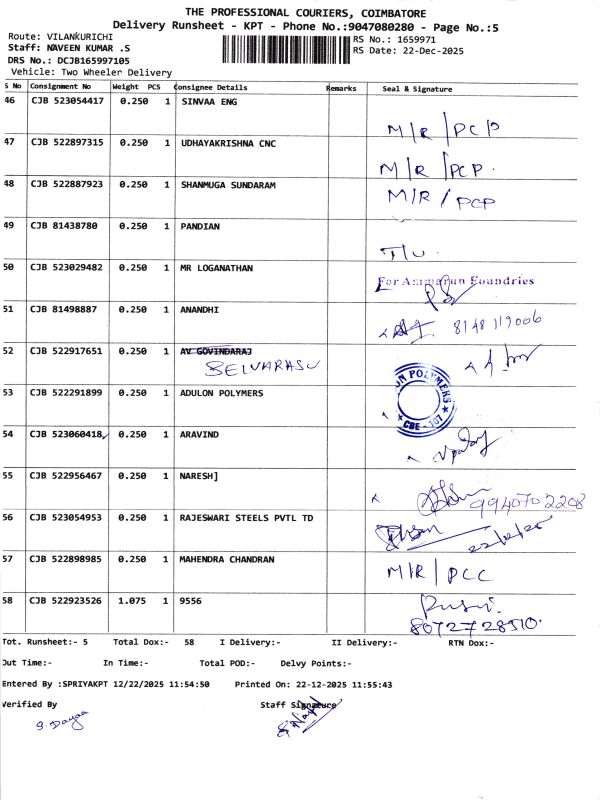 THE PROFESSIONAL COURIERS, COIMBATORE
Delivery Runsheet - KPT - Phone No.:9047080280 - Page No.:5
Route: VILANKURICHI
RS No.: 1659971
Staff: NAVEEN KUMAR .S
RS Date: 22-Dec-2025
DRS No.: DCJB165997105
Vehicle: Two Wheeler Delivery
S No Consignment No Weight PCS Consignee Details Remarks Seal & Signature
46 CJB 523054417 0.250 1 SINVAA ENG M/R/PCP
47 CJB 522897315 0.250 1 UDHAYAKRISHNA CNC M/R/PCP.
48 CJB 522887923 0.250 1 SHANMUGA SUNDARAM M/R/PCP
49 CJB 81438780 0.250 1 PANDIAN T/U.
50 CJB 523029482 0.250 1 MR LOGANATHAN For Ammarun Foundries
51 CJB 81498887 0.250 1 ANANDHI 8148119006
52 CJB 522917651 0.250 1 AV GOVINDARAJ
SELVARASU
53 CJB 522291899 0.250 1 ADULON POLYMERS ON POLYMERS CBE - 107
54 CJB 523060418 0.250 1 ARAVIND
55 CJB 522956467 0.250 1 NARESH] 9940702208
56 CJB 523054953 0.250 1 RAJESWARI STEELS PVTL TD
57 CJB 522898985 0.250 1 MAHENDRA CHANDRAN M/R/PCC
58 CJB 522923526 1.075 1 9556
8072728510.
Tot. Runsheet:- 5 Total Dox:- 58 I Delivery:- II Delivery:- RTN Dox:-
Out Time:- In Time:- Total POD:- Delvy Points:-
Entered By :SPRIYAKPT 12/22/2025 11:54:50 Printed On: 22-12-2025 11:55:43
Verified By Staff Signature